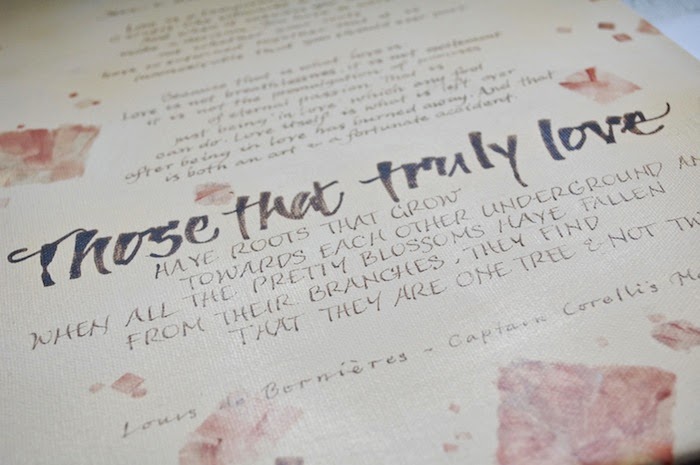 inconceivable that you should ever part
Because that is what love is
Love is not breathlessness, it is not excitement
it is not the promulgation of promises
of eternal passion. That is
just being in love which any fool
can do. Love itself is what is left over
after being in love has burned away. And that
is both an art & a fortunate accident.
Those that truly love
HAVE ROOTS THAT GROW
TOWARDS EACH OTHER UNDERGROUND AN
WHEN ALL THE PRETTY BLOSSOMS HAVE FALLEN
FROM THEIR BRANCHES, THEY FIND
THAT THEY ARE ONE TREE & NOT TW
Louis de Bernières - Captain Corelli's M